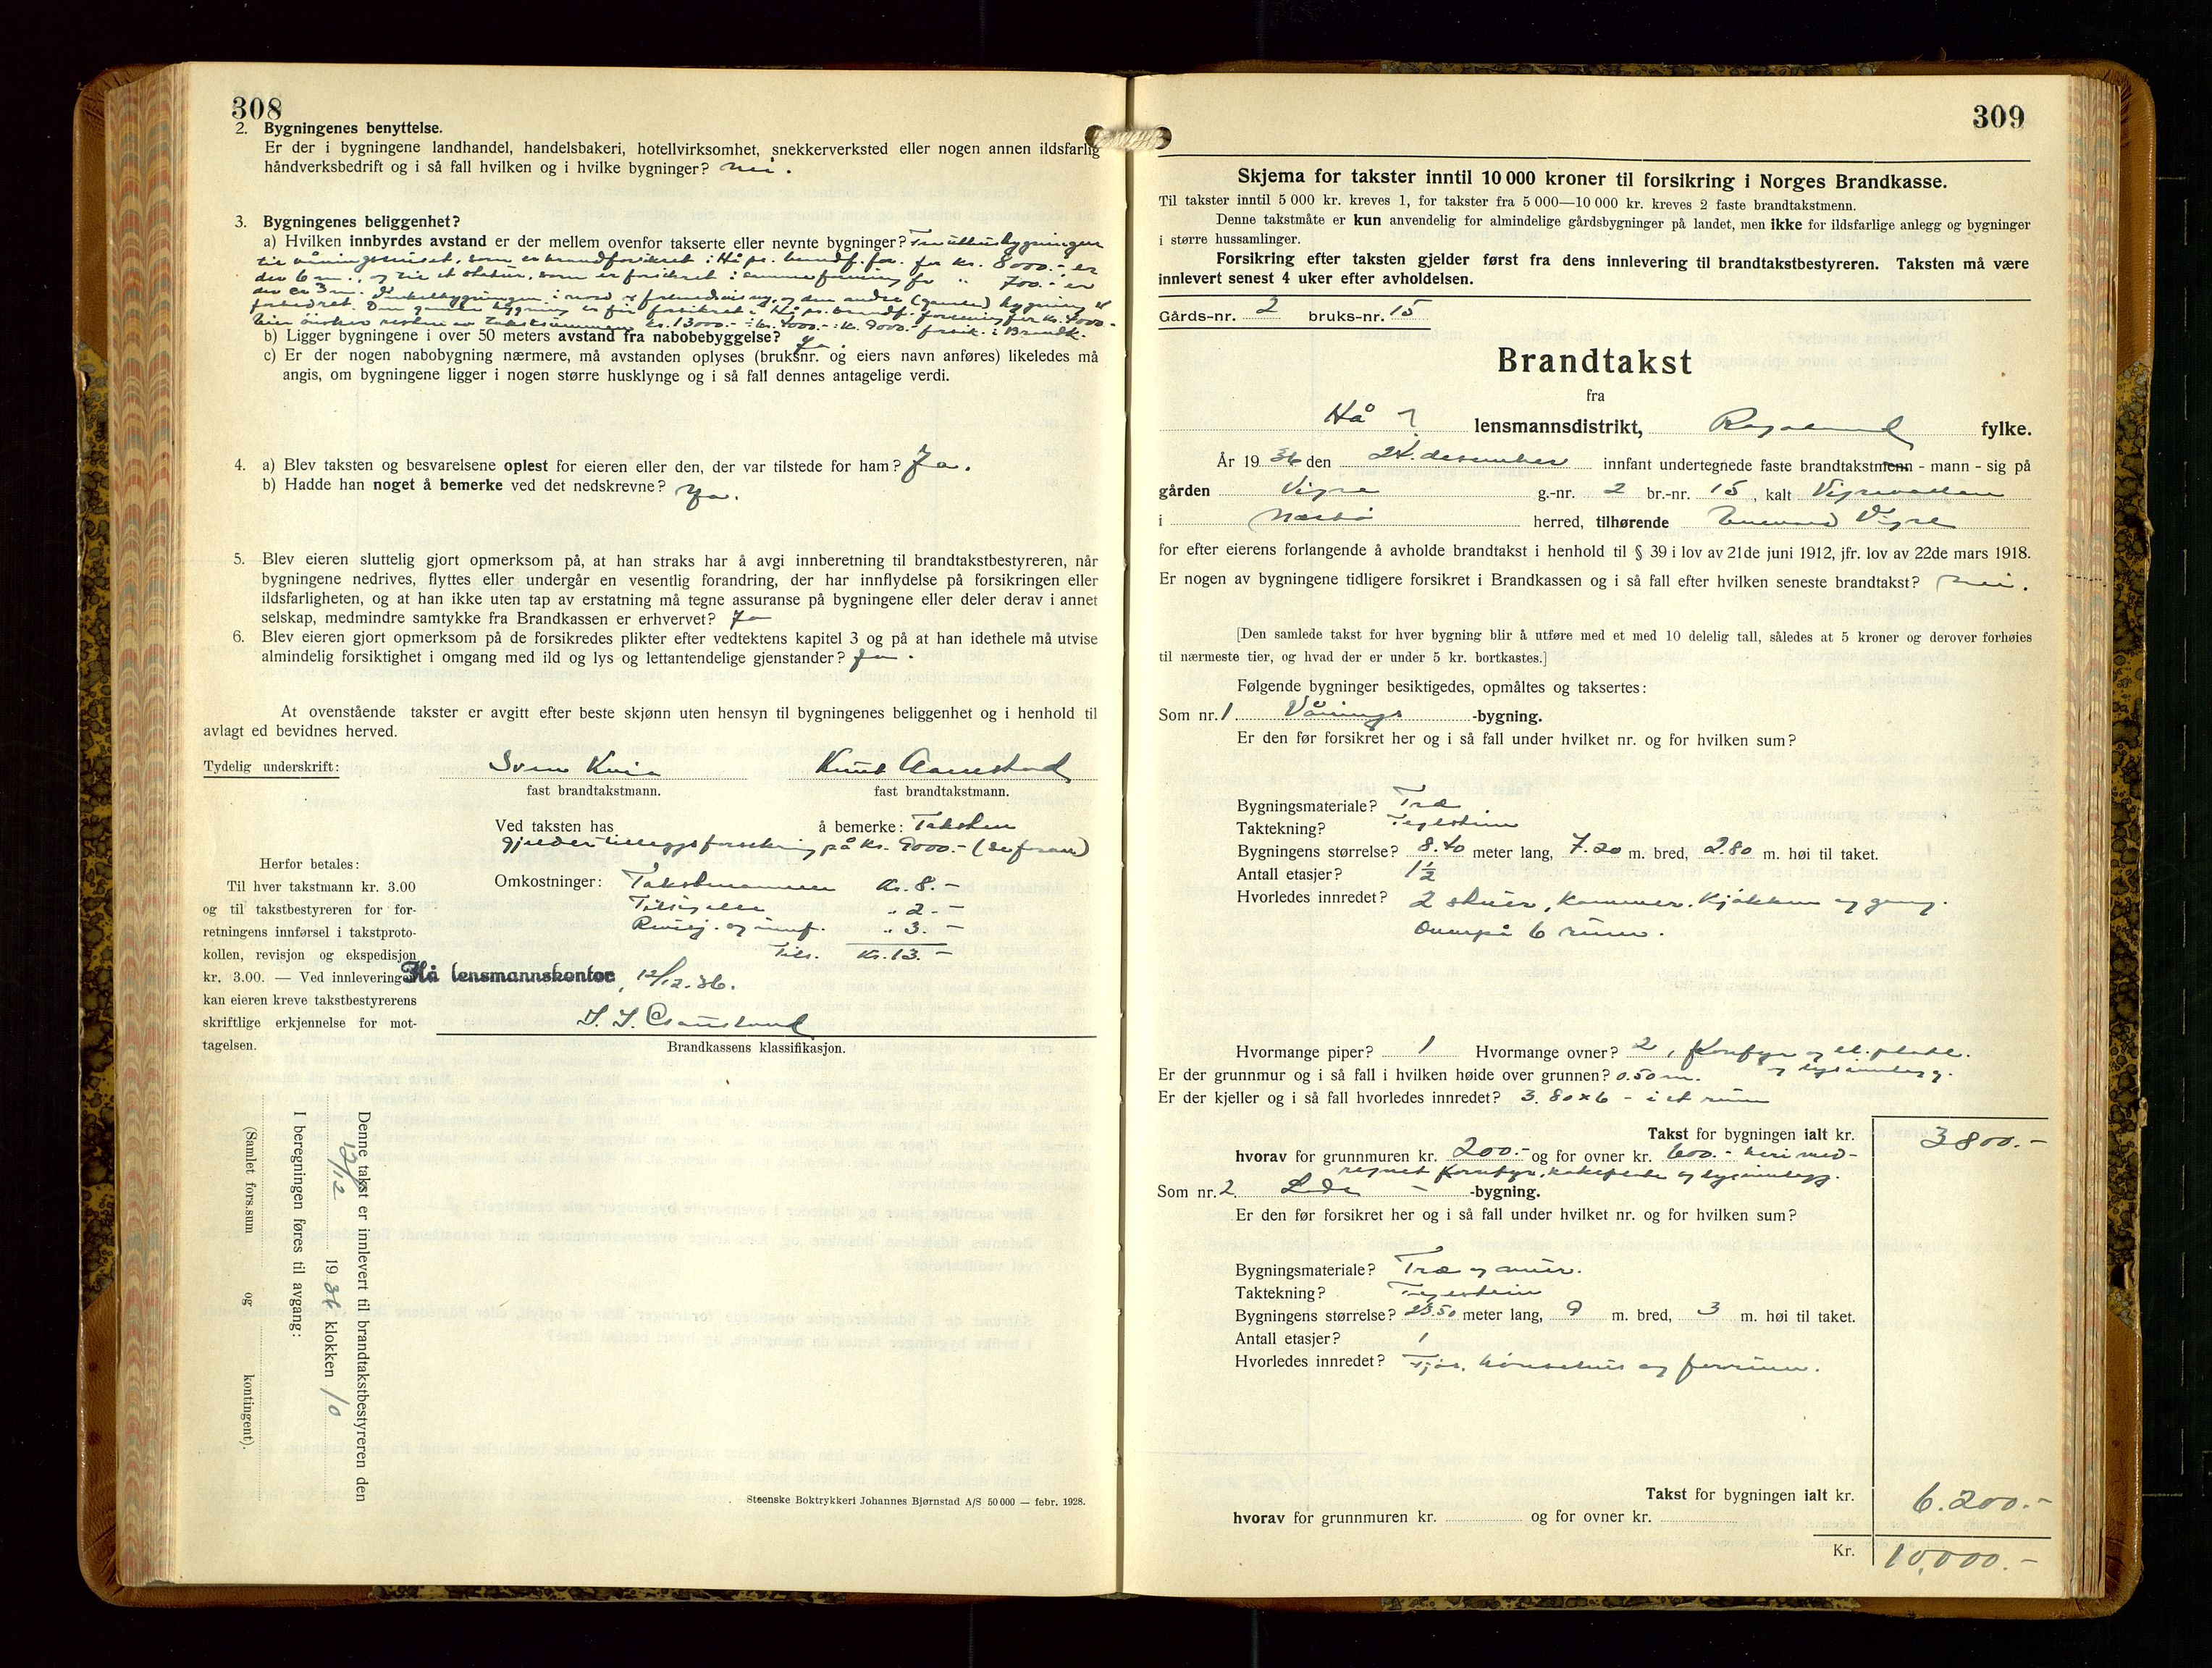 308
2. Bygningenes benyttelse.
Er der i bygningene landhandel, handelsbakeri, hotellvirksomhet, snekkerverksted eller nogen annen ildsfarlig
håndverksbedrift og i så fall hvilken og i hvilke bygninger? nei.
3. Bygningenes beliggenhet?
a) Hvilken innbyrdes avstand er der mellem ovenfor takserte eller nevnte bygninger?
til våningshuset, som er brandforsikret i Hå pr. brandf. for. for kr. 8000.-, er
der 6 m., og til et stabur, som er forsikret i samme forening for " 700.- er
der ca 3 m.
kr. 13000.- ÷ kr. 4000.- : kr. 9000.- forsik. i Brandk.
b) Ligger bygningene i over 50 meters avstand fra nabobebyggelse? Ja.
c) Er der nogen nabobygning nærmere, må avstanden oplyses (bruksnr. og eiers navn anføres) likeledes må
angis, om bygningene ligger i nogen større husklynge og i så fall dennes antagelige verdi.
4. a) Blev taksten og besvarelsene oplest for eieren eller den, der var tilstede for ham? Ja.
b) Hadde han noget å bemerke ved det nedskrevne?
5. Blev eieren sluttelig gjort opmerksom på, at han straks har å avgi innberetning til brandtakstbestyreren, når
bygningene nedrives, flyttes eller undergår en vesentlig forandring, der har innflydelse på forsikringen eller
ildsfarligheten, og at han ikke uten tap av erstatning må tegne assuranse på bygningene eller deler derav i annet
selskap, medmindre samtykke fra Brandkassen er erhvervet? Ja
6. Blev eieren gjort opmerksom på de forsikredes plikter efter vedtektens kapitel 3 og på at han idethele må utvise
almindelig forsiktighet i omgang med ild og lys og lettantendelige gjenstander? Ja.
At ovenstående takster er avgitt efter beste skjønn uten hensyn til bygningenes beliggenhet og i henhold til
avlagt ed bevidnes herved.
Tydelig underskrift: Knut Aanestad
fast brandtakstmann. fast brandtakstmann.
Ved taksten has å bemerke: Taksten
gjelder tilleggsforsikring på kr. 9000.-
Herfor betales:
Til hver takstmann kr. 3.00
og til takstbestyreren for for-
retningens innførsel i takstproto-
kollen, revisjon og ekspedisjon
kr. 3.00. — Ved innleveringen
kan eieren kreve takstbestyrerens
skriftlige erkjennelse for mot-
tagelsen.
Omkostninger: Takstmannen Kr. 8.-
Tilsigelse " 2.-
Revisj. og innf. " 3.-
Tils. Kr. 13.-
Hå lensmannskontor, 12/12.36.
Brandkassens klassifikasjon.
Denne takst er innlevert til brandtakstbestyreren den
12/12 1936 klokken 10
I beregningen føres til avgang:
(Samlet fors.sum og kontingent).
Steenske Boktrykkeri Johannes Bjørnstad A/S 50 000 — febr. 1928.
309
Skjema for takster inntil 10 000 kroner til forsikring i Norges Brandkasse.
Til takster inntil 5 000 kr. kreves 1, for takster fra 5 000—10 000 kr. kreves 2 faste brandtakstmenn.
Denne takstmåte er kun anvendelig for almindelige gårdsbygninger på landet, men ikke for ildsfarlige anlegg og bygninger
i større hussamlinger.
Forsikring efter taksten gjelder først fra dens innlevering til brandtakstbestyreren. Taksten må være
innlevert senest 4 uker efter avholdelsen.
Gårds-nr. 2 bruks-nr. 15
Brandtakst
fra
Hå lensmannsdistrikt, Rogaland fylke.
År 1936 den 24. desember innfant undertegnede faste brandtakstmenn - mann - sig på
gården Vigre g.-nr. 2 br.-nr. 15, kalt
i Nærbø herred, tilhørende Vigre
for efter eierens forlangende å avholde brandtakst i henhold til § 39 i lov av 21de juni 1912, jfr. lov av 22de mars 1918.
Er nogen av bygningene tidligere forsikret i Brandkassen og i så fall efter hvilken seneste brandtakst? nei.
[Den samlede takst for hver bygning blir å utføre med et med 10 delelig tall, således at 5 kroner og derover forhøies
til nærmeste tier, og hvad der er under 5 kr. bortkastes.]
Følgende bygninger besiktigedes, opmåltes og taksertes:
Som nr. 1 Vånings -bygning.
Er den før forsikret her og i så fall under hvilket nr. og for hvilken sum?
Bygningsmateriale? Træ
Taktekning? Teglstein
Bygningens størrelse? 8.40 meter lang, 7.20 m. bred, 2.80 m. høi til taket.
Antall etasjer? 1½
Hvorledes innredet? 2 stuer, kammer, kjøkken og gang.
Ovenpå 6 rum.
Hvormange piper? 1 Hvormange ovner? 2, komfyr og el. plate.
og lysinnlegg.
Er der grunnmur og i så fall i hvilken høide over grunnen? 0.50 m.
Er der kjeller og i så fall hvorledes innredet? 3.80 x 6 - i et rum
Takst for bygningen ialt kr. 3800.-
hvorav for grunnmuren kr. 200.- og for ovner kr. 600.- heri med-
regnet komfyr, kokeplate og lysinnlegg.
Som nr. 2 Løde - -bygning.
Er den før forsikret her og i så fall under hvilket nr. og for hvilken sum?
Bygningsmateriale? Træ og mur.
Taktekning? Teglstein
Bygningens størrelse? 23.50 meter lang, 9 m. bred, 3 m. høi til taket.
Antall etasjer? 1
Hvorledes innredet? Fjøs, hønsehus og forrum.
Takst for bygningen ialt kr. 6.200.-
hvorav for grunnmuren kr. og for ovner kr.
Kr. 10,000.-